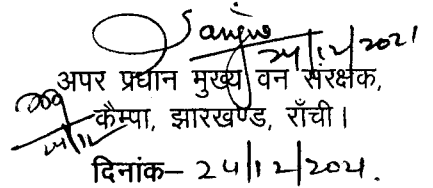 Sanjeev
24/12/2021
अपर प्रधान मुख्य वन संरक्षक,
24/12
कैम्पा, झारखण्ड, राँची।
दिनांक– 24/12/2021.